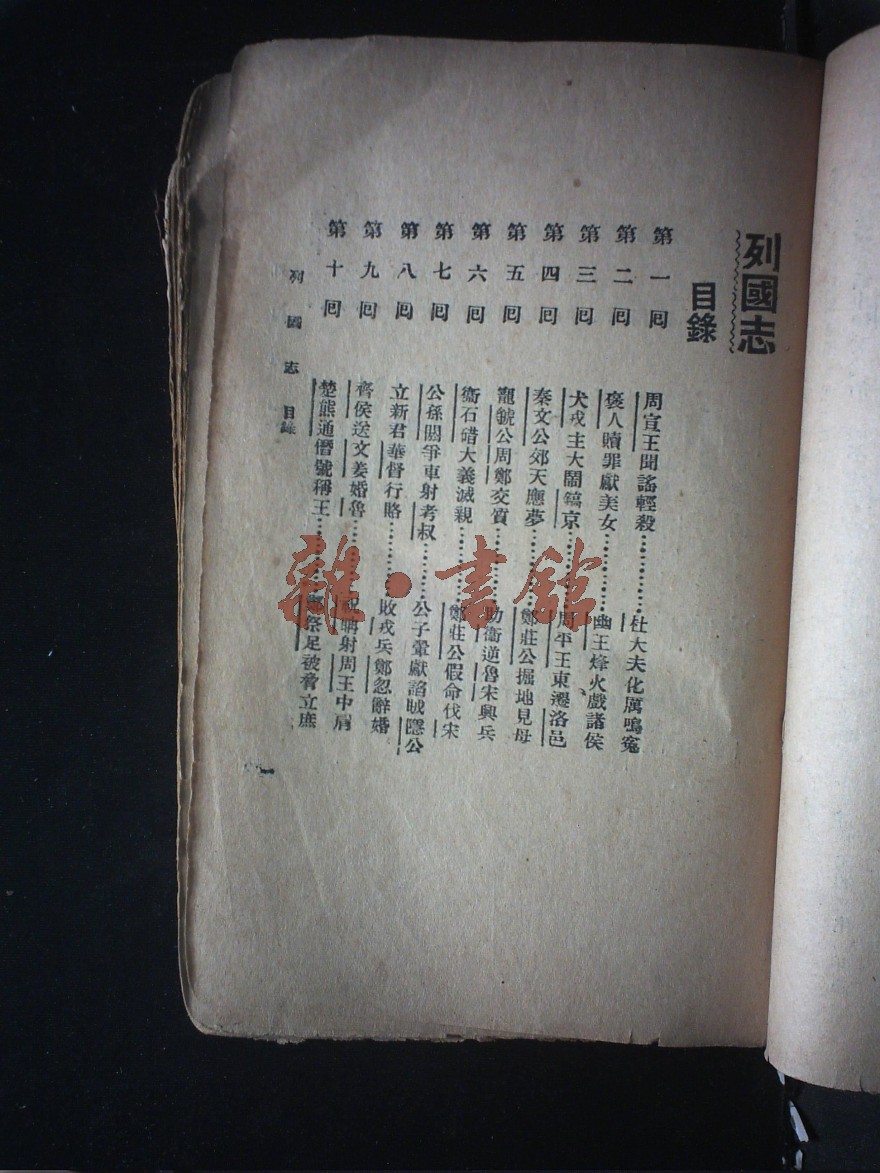 列國志
目錄
第一回 周宣王聞謠輕殺…………杜大夫化厲鳴冤
第二回 褒人贖罪獻美女…………幽王烽火戲諸侯
第三回 犬戎主大鬧鎬京…………周平王東遷洛邑
第四回 秦文公郊天應夢…………鄭莊公掘地見母
第五回 寵虢公周鄭交質…………助衞逆魯宋興兵
第六回 衞石碏大義滅親…………鄭莊公假命伐宋
第七回 公孫閼爭車射考叔…………公子翬獻諂賊隱公
第八回 立新君華督行賂…………敗戎兵鄭忽辭婚
第九回 齊侯送文姜婚魯…………祝聃射周王中肩
第十回 楚熊通僭號稱王…………鄭祭足被脅立庶
列國志 目錄
一
雜·書館